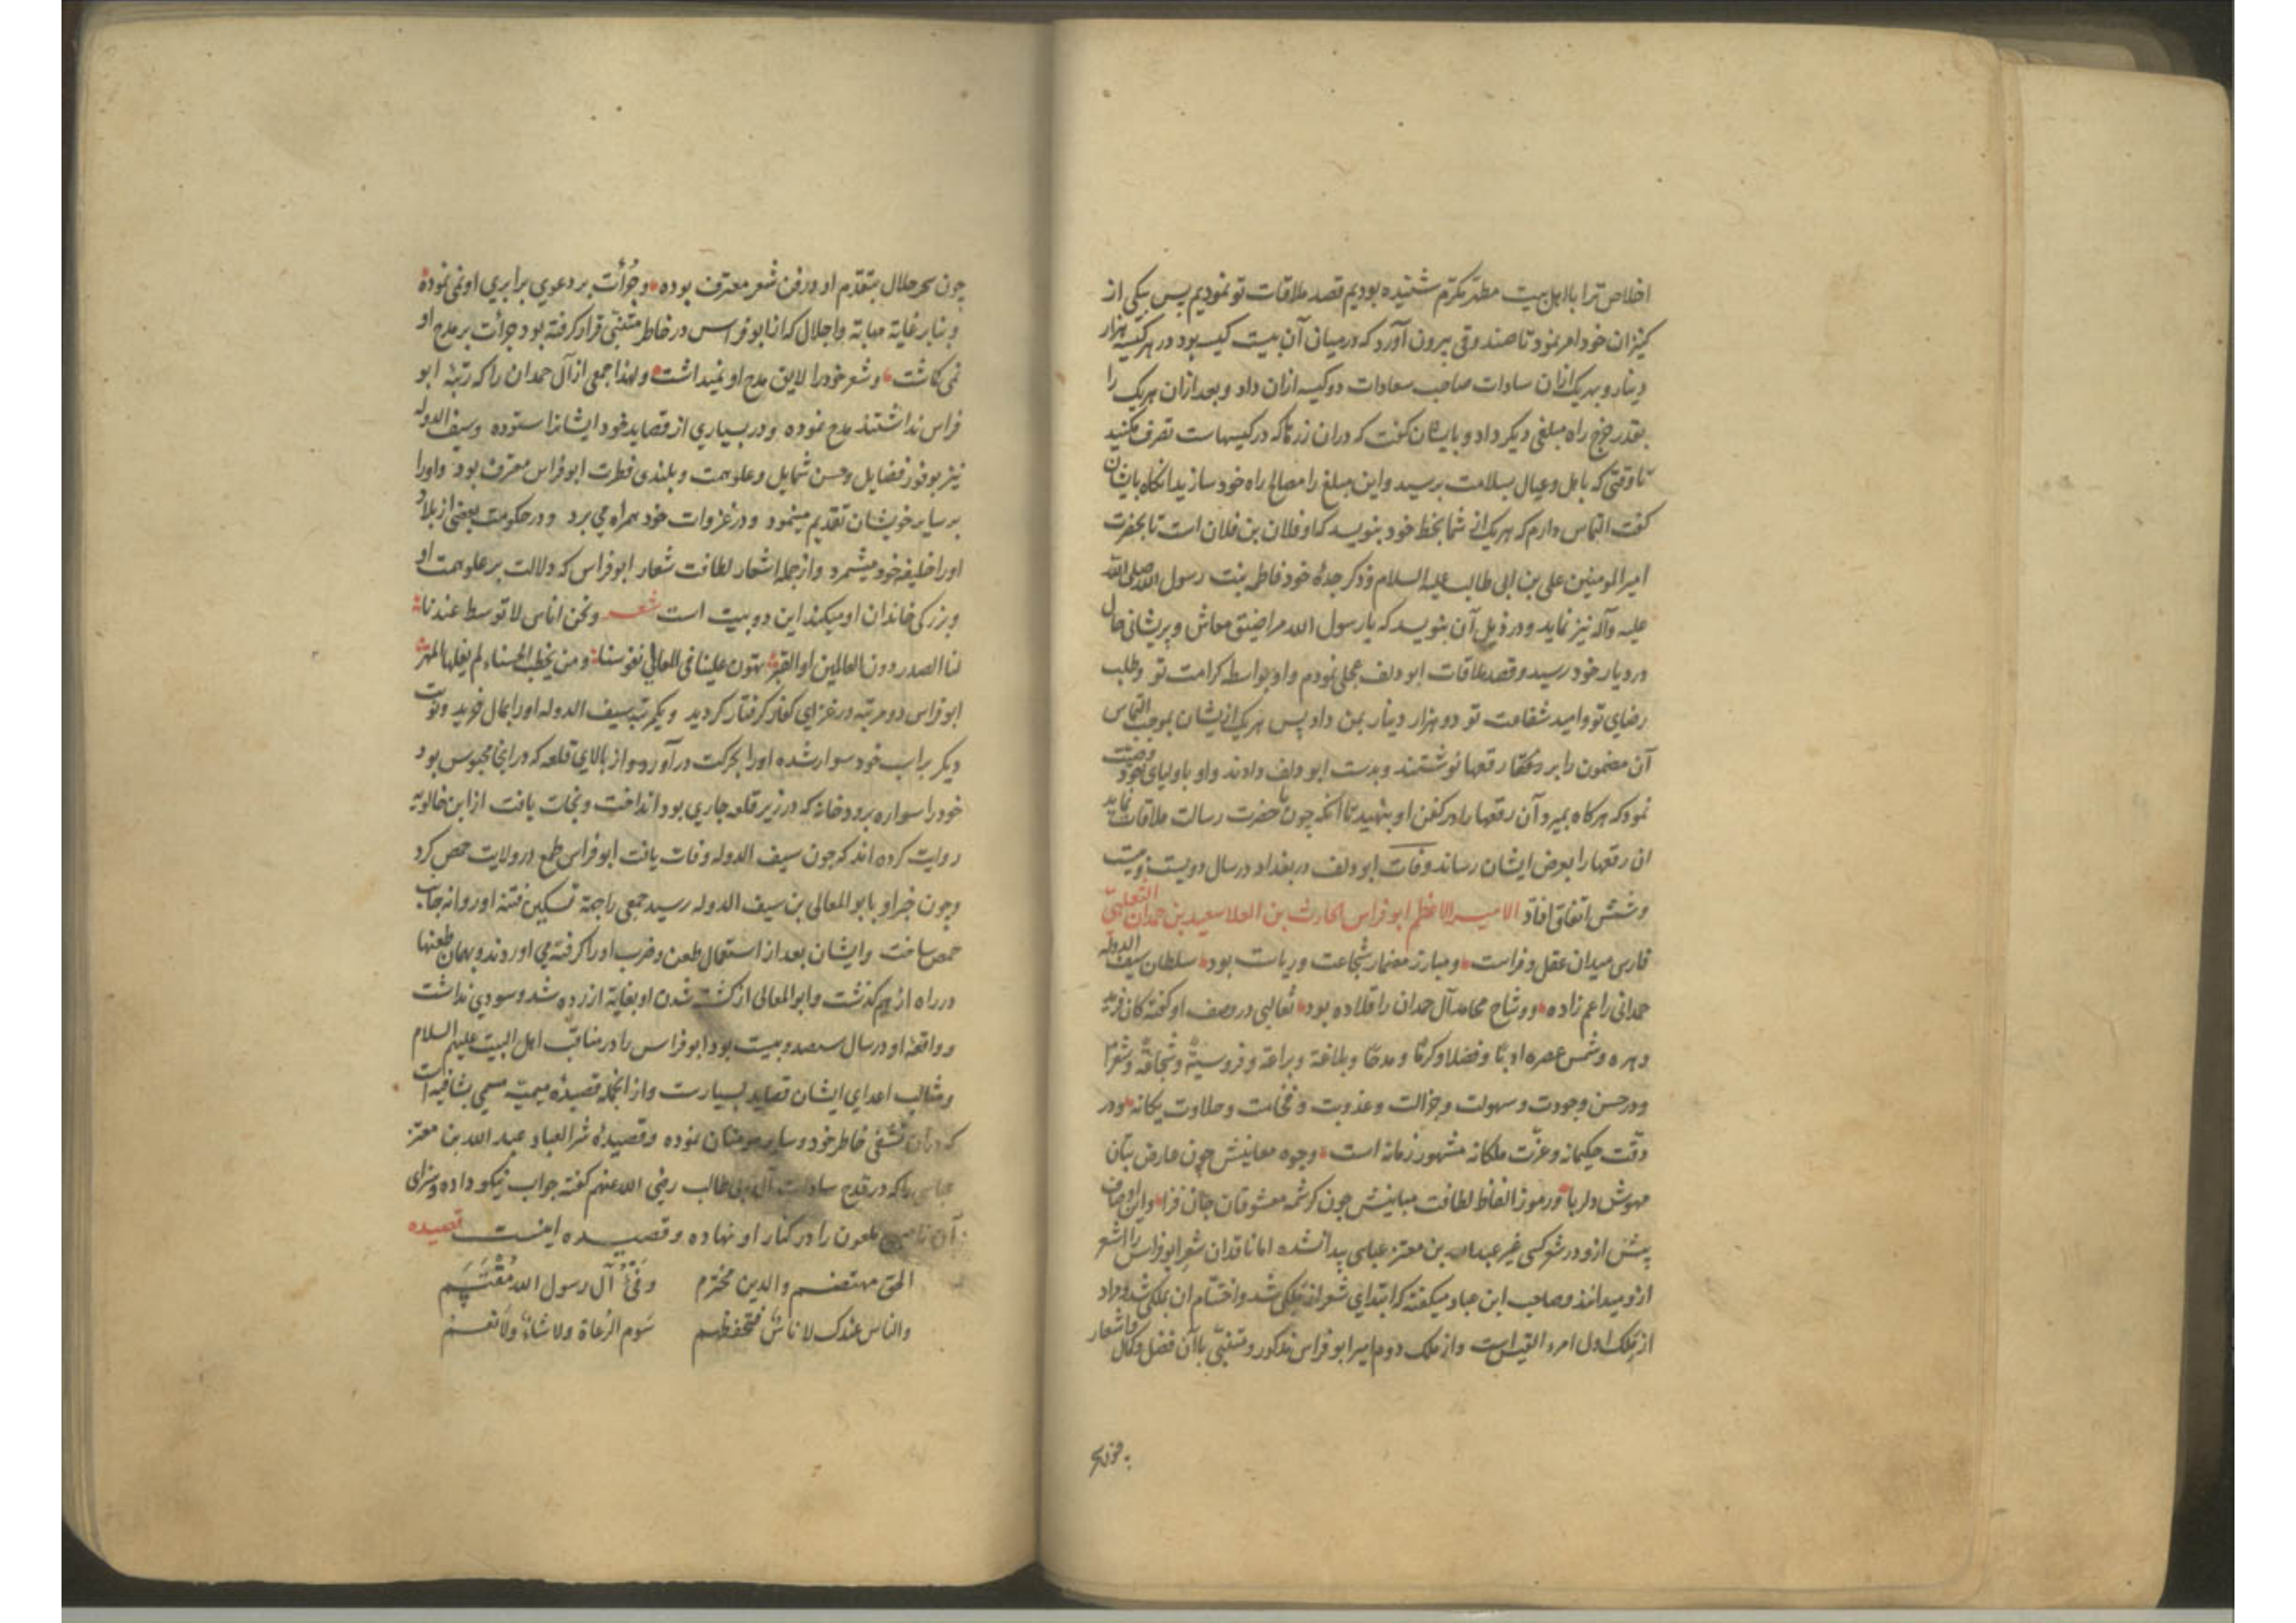 اخلاص ترا با اهل بیت مطهر مکرم شنیده بودیم قصد ملاقات تو نمودیم پس بیکی از
کنیزان خود امر نمود تا صندوقی بیرون آورد که در میان آن بیست کیسه بود در هر کیسه هزار
دینار و بهر یک ازان سادات صاحب سعادات دو کیسه ازان داد و بعد ازان هر یک را
بقدر خرج راه مبلغی دیکر داد و بایشان کفت که دران زرها که در کیسهاست تصرف مکنید
تا وقتی که باهل و عیال بسلامت برسید و این مبلغ را مصالح راه خود سازید انکاه بایشان
کفت التماس دارم که هر یک از شما بخط خود بنویسد که او فلان بن فلان است تا بحضرت
امیر المومنین علی بن ابی طالب علیه السلام و ذکر جدهٔ خود فاطمه بنت رسول الله صلی الله
علیه وآله نیز نماید و در ذیل آن بنویسد که یا رسول الله مرا ضیق معاش و پریشانی حال
در دیار خود رسید و قصد ملاقات ابو دلف عجلی نمودم و او بواسطه کرامت تو و طلب
رضای تو و امید شفاعت تو دو هزار دینار بمن داد پس هر یک ازیشان بموجب التماس
آن مضمون را بر رقعها نوشتند و بدست ابو دلف دادند و او باولیای خود وصیت
نمود که هر کاه بمیرد آن رقعها را در کفن او بنهید تا آنکه چون با حضرت رسالت ملاقات نماید
ان رقعها را بعرض ایشان رساند وفات ابو دلف در بغداد در سال دویست و بیست
و شش اتفاق افتاد الامیر الاعظم ابو فراس الحارث بن العلا سعید بن حمدان التغلبی
فارس میدان عقل و فراست و مبارز مضمار شجاعت و ریاست بود سلطان سیف الدوله
حمدانی را عم زاده و وشاح محامد آل حمدان را قلاده بود ثعالبی در وصف او کفته کان فرید
دهره و شمس عصره ادبا و فضلا و کرما و مدحا و بلاغة و براعة و فروسیة و شجاعة و شعرا
و در حسن و جودت و سهولت و جزالت و عذوبت و فخامت و حلاوت یکانه و در
دقت حکیمانه و عزت ملکانه مشهور زمانه است وجوه معانیش چون عارض بتان
مهوش دلربا و رموز الفاظ لطافت مبانیش چون کرشمه معشوقان جان فزا و این اوصاف
پیش ازو در شعر کسی غیر عبدالله بن معتز عباسی پیدا نشده اما ناقدان شعر ابو فراس را اشعر
ازو میدانند و صاحب ابن عباد میکفته که ابتدای شعر از ملکی شد و اختتام ان بملکی شد و مراد
از ملک اول امرء القیس است و از ملک دوم امیر ابو فراس مذکور و متنبی با آن فضل و کمال و اشعار
چون سحر حلال بتقدم او در فن شعر معترف بوده و جرأت بر دعوی برابری او نمی نموده
و بنابر غایة مهابة و اجلال که از ابو فراس در خاطر متنبی قرار کرفته بود جرأت بر مدح او
نمی کاشت و شعر خود را لایق مدح او نمیداشت و لهذا جمعی از آل حمدان را که رتبهٔ ابو
فراس نداشتند مدح نموده و در بسیاری از قصاید خود ایشانرا ستوده و سیف الدوله
نیز بوفور فضایل و حسن شمایل و علو همت و بلندی فطرت ابو فراس معترف بود و او را
بر سایر خویشان تقدیم مینمود و در غزوات خود همراه می برد و در حکومت بعضی از بلاد
او را خلیفه خود میشمرد و از جمله اشعار لطافت شعار ابو فراس که دلالت بر علو همت او
و بزرکی خاندان او میکند این دو بیت است شعر و نحن اناس لا توسط عندنا
لنا الصدر دون العالمین او القبر تهون علینا فی المعالی نفوسنا و من یخطب الحسناء لم یغلها المهر
ابو فراس دو مرتبه در غزای کفار کرفتار کردید و یکمرتبه سیف الدوله او را بمال خرید و نوبت
دیکر بر اسب خود سوار شده او را بحرکت در آورد و از بالای قلعه که در انجا محبوس بود
خود را سواره برودخانه که در زیر قلعه جاری بود انداخت و نجات یافت از ابن خالویه
روایت کرده اند که چون سیف الدوله وفات یافت ابو فراس طمع در ولایت حمص کرد
و چون خبر او بابو المعالی بن سیف الدوله رسید جمعی را جهة تسکین فتنه او روانه جانب
حمص ساخت و ایشان بعد از استعمال طعن و ضرب او را کرفته می اوردند و بهمان طعنها
در راه از هم کذشت و ابو المعالی از کشته شدن او بغایة ازرده شد و سودی نداشت
و واقعهٔ او در سال سیصد و بیست بود ابو فراس را در مناقب اهل البیت علیهم السلام
و مثالب اعدای ایشان قصاید بسیارست و از انجمله قصیدهٔ میمیه مسمی بشافیه است
که دران تشفی خاطر خود و سایر مومنان نموده و قصیدهٔ شر العباد عبد الله بن معتز
عباسی را که در قدح سادات آل ابی طالب رضی الله عنهم کفته جواب نیکو داده و سزای
آن ناصبی ملعون را در کنار او نهاده و قصیده اینست قصیده
الحق مهتضم والدین مخترم وفیٔ آل رسول الله مقتسم
والناس عندک لا ناس فتحفظهم سوم الرعاة ولا شاء ولا نعم